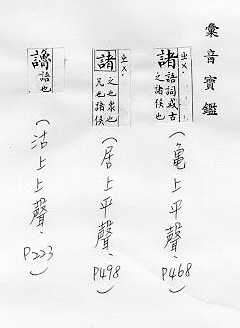 彙音寶鑑
諸
ㄓㄨ
語詞或古
之諸侯也
(龜上平聲、P468)
諸
ㄓㄨ
之也衆也
凡也諸侯
(居上平聲、P498)
語也
(沽上上聲、P223)